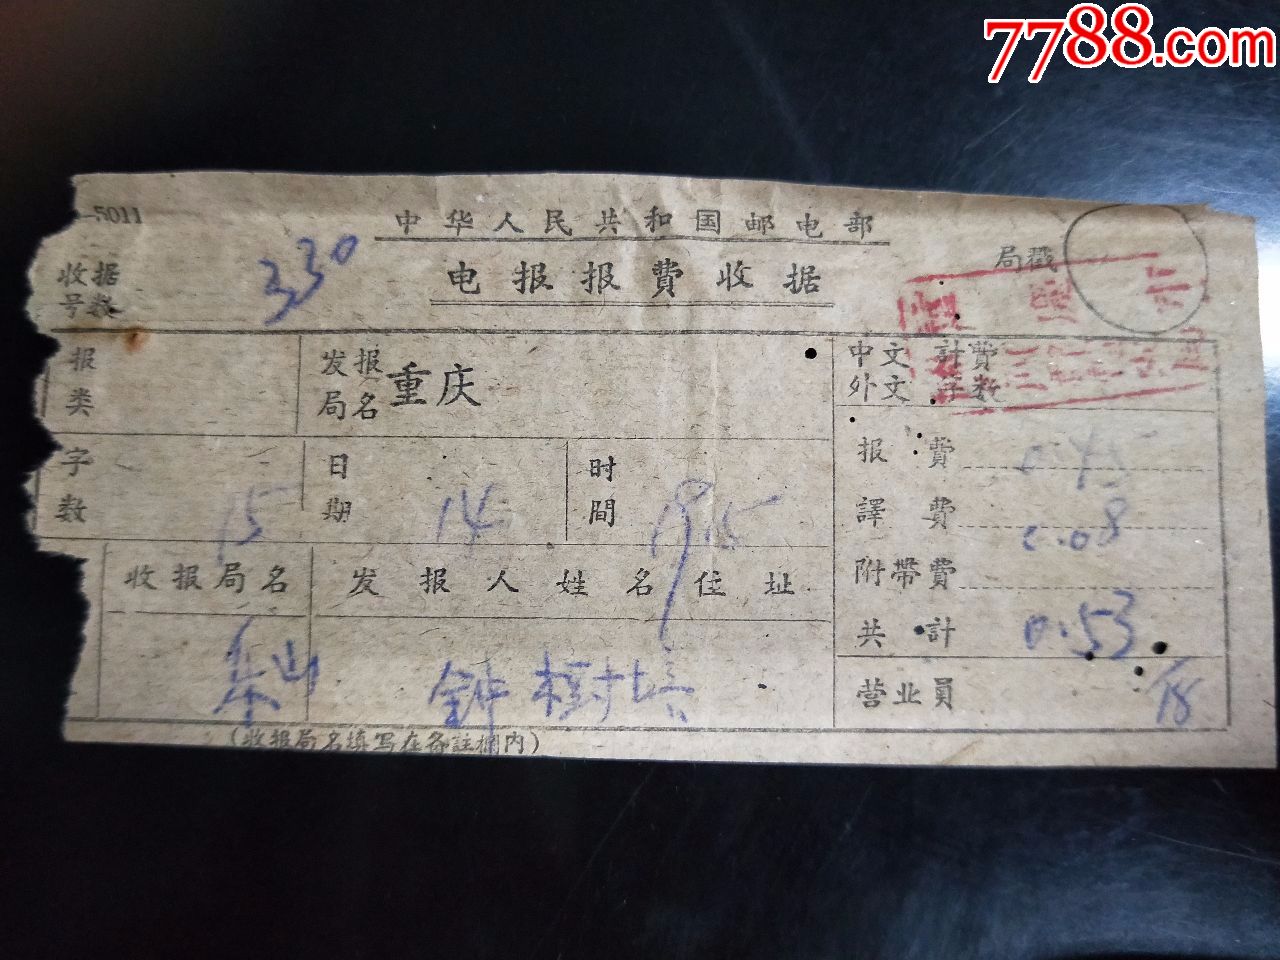 7788.com
-5011
中华人民共和国邮电部
收据号数 330
电报报费收据
局戳
报类
发报局名 重庆
中文 計費
外文 字数
字数 15
日期 14
时間 1915
报費 0.45
譯費 0.08
附帶費
共計 0.53
收报局名
发报人姓名住址
乐山
钟樹培
营业员 18
(收报局名填写在备註欄內)